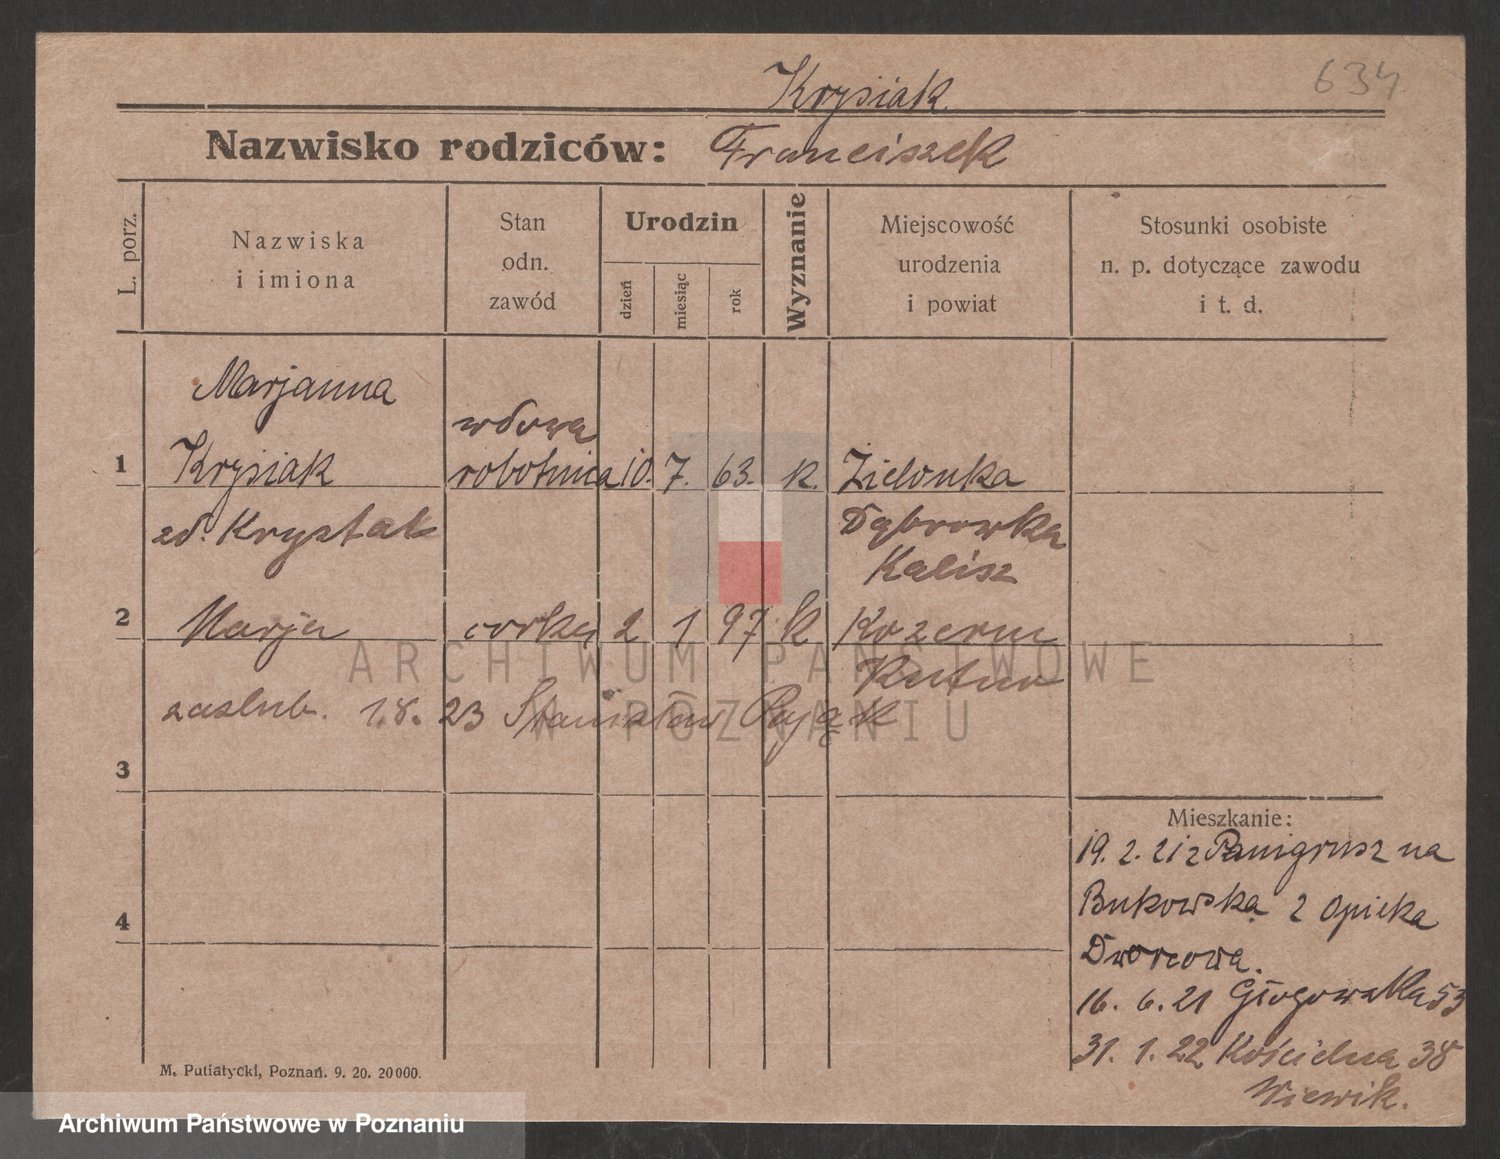 634
Krysiak
Nazwisko rodziców: Franciszek
L. porz.
Nazwiska
i imiona
Stan
odn.
zawód
Urodzin
dzień
miesiąc
rok
Wyznanie
Miejscowość
urodzenia
i powiat
Stosunki osobiste
n. p. dotyczące zawodu
i t. d.
Marjanna
wdowa
1 Krysiak robotnica 10. 7. 63. k. Zielonka
zd. Krysztak Dąbrowka
Kalisz
2 Marja corka 2 1 97 k
ARCHIWUM PAŃSTWOWE
W POZNANIU
zaslub. 1.8. 23 Stanisław Pająk
3
Mieszkanie:
19. 2. 21 z na
Bukowska 2 opieka
Dworcowa.
16. 6. 21 Głogowska 53
31. 1. 22 Kościelna 38
4
M. Putiatycki, Poznań. 9. 20. 20000.
Archiwum Państwowe w Poznaniu